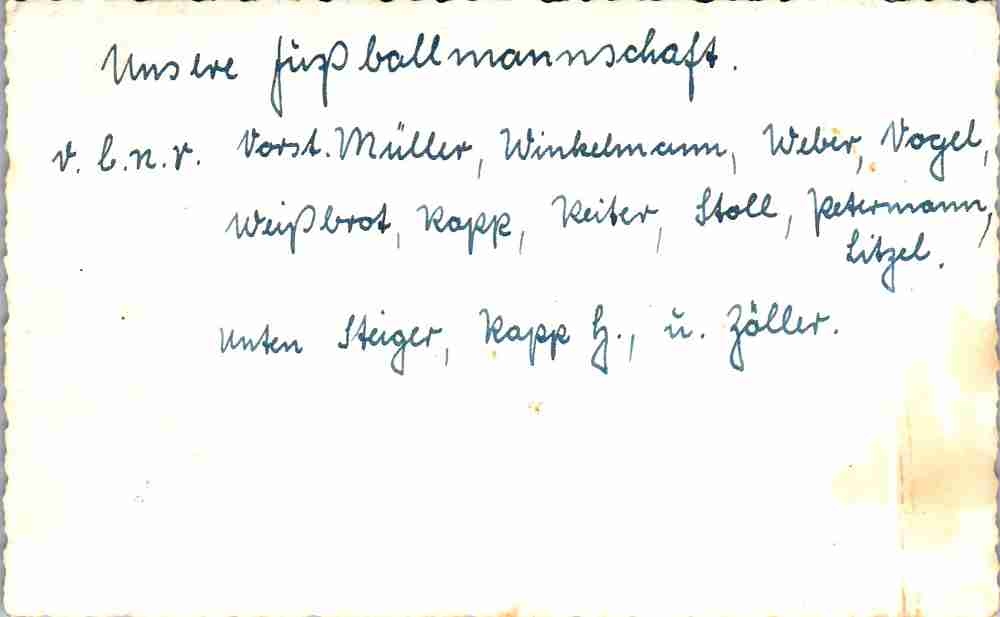 Unsere Fußballmannschaft.
v. l. n. r. Vorst. Müller, Winkelmann, Weber, Vogel,
Weißbrot, Rapp, Reiter, Stoll, Petermann,
Litzel.
unten Steiger, Rapp H., u. Zöller.